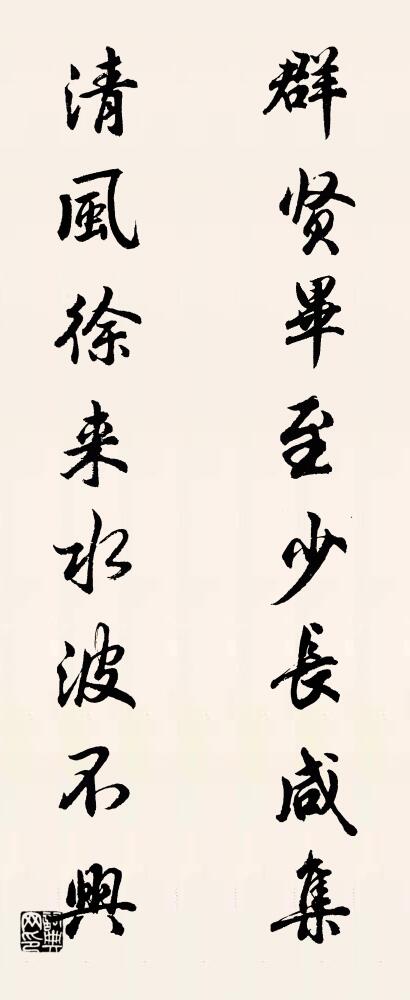 群贤畢至少長咸集
清風徐来水波不興